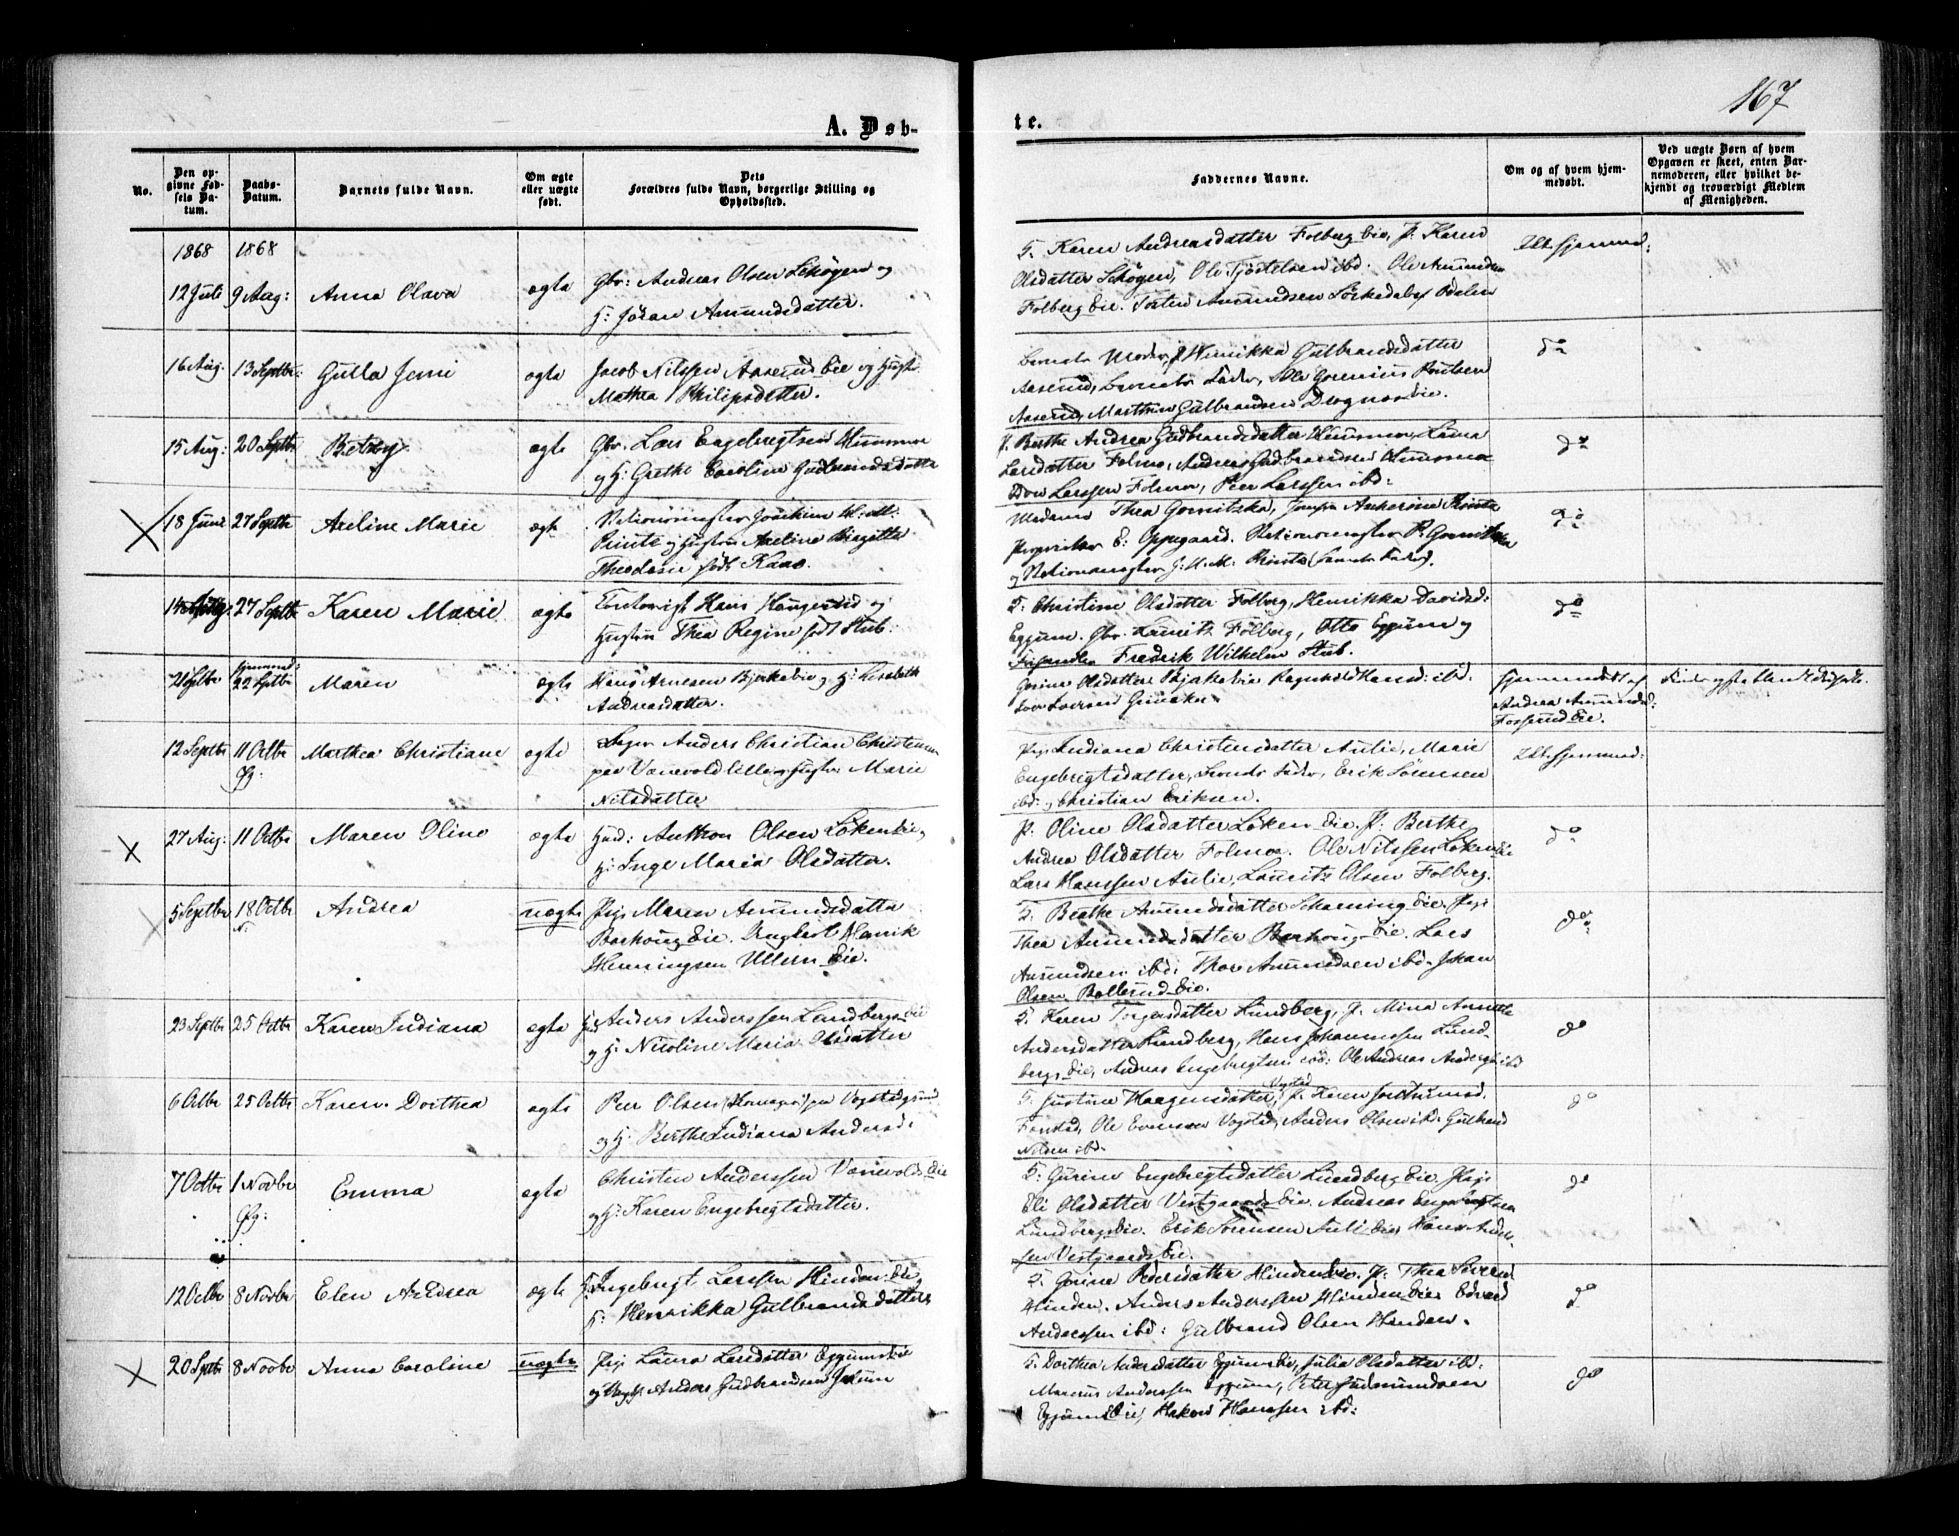 167
A. Døb-
te.
No.
Den op-
givne Fød-
sels Da-
tum.
Daabs-
Datum.
Barnets fulde Navn.
Om ægte
eller uægte
født.
Dets
Forældres fulde Navn, borgerlige Stilling og
Opholdssted.
Faddernes Navne.
Om og af hvem hjem-
medøbt.
Ved uægte Børn af hvem
Opgaven er skeet, enten Bar-
nemoderen, eller hvilket be-
kjendt og troværdigt Medlem
af Menigheden.
1868 1868
12 Juli 9 Aug: Anna Olava ægte
Gbr: Andreas Olsen Schøyen og
H: Jøran Amundsdatter.
G. Karen Andreasdatter Folberg Eie, P. Karen
Olsdatter Schøyen, Ole Tjostelsen ibd. Ole Amundsen
Folberg Eie. Torsten Amundsen
16 Aug. 13 Septbr: Gulla Jenni ægte
Jacob Nilssen Aaserud Eie og Hustr
Mathea Philipsdatter.
Barnets Moder, P. Henrikka Gulbrandsdatter
Aaserud, Barnets Fader, Ole Knutsen
Aaserud, Gulbrandsen Dragnes Eie.
do
15 Aug: 20 Septbr Betsey ægte
Gbr. Lars Engebregtsen
og H: Grethe Caroline Gudbrandsdatter
P. Berthe Andrea Gudbrandsdatter
Larsdatter Folmo, Andreas Gudbrandsen
Larssen Folmo, Peer Larssen ibd:
do
18 Juni 27 Septbr Axeline Marie ægte
Printz og Hustru Axeline Birgitte
Theodosie født Kaas.
Madame Thea Gornitzka, Jomfru
E: Oppegaard.
J: M. M: Printz (Barnets Fader).
do
27 Septbr Karen Marie ægte
Hans Haugerstid og
Hustru Thea Regine født Stub.
G: Christine Olsdatter Folberg, Henrikka Davidsd:
Eggum. Gbr. Lauritz Folberg, Otto Eggum og
Fredrik Wilhelm Stub.
do
21 Septbr 22 Septbr Maren ægte
Hans Arnesen Bjerke Eie og H: Lisabeth
Andreasdatter.
Gorine Olsdatter Bjerke Eie Ragnhild Hansd: ibd.
Hjemmedøbt af
Andrea Amundsd:
Fosserud Eie.
12 Septbr 11 Octbr Marthea Christiane ægte
Anders Christian Christensen
paa Vanevold lille og Hustru Marie
Nilsdatter
Pige Indiana Christensdatter Aulie, Marie
Engebregtsdatter, Barnets Fader, Erik Sørensen
ibd: og Christian Eriksen.
27 Aug: 11 Octbr Maren Oline ægte
Husd: Anthon Olsen Løken Eie,
H: Inge Maria Olsdatter.
P: Oline Olsdatter Løken Eie. P: Berthe
Andrea Olsdatter Folmoe. Ole Nilssen Løken Eie
Lars Hanssen Aulie, Lauritz Olsen Folberg.
do
5 Septbr 18 Octbr Andrea uægte
Pige Maren Amundsdatter
Eie. Henrik
Henningsen Ullern Eie.
G: Berthe Amundsdatter Eie. Pige
Thea Amundsdatter Eie. Lars
Amundsen ibd: Thore Amundsen ibd. Johan
Olsen Bollerud Eie.
do
23 Septbr 25 Octbr Karen Indiana ægte
Anders Anderssen Lundbergs Eie
og H: Nicoline Maria Olsdatter
G: Karen Lundberg, P. Mina Annette
Andersdatter Lundberg, Hans Johannessen Lund-
bergs Eie, Andreas Engebregtsen ibd: Ole Andreas Anderssen ibd
do
6 Octbr 25 Octbr Karen Dorthea ægte
Peer Olsen (Homager) paa
og H: Berthe Indiana Andersd:
G: Justine Haagensdatter Vogstad, P. Karen
Ole Evensen Vogstad, Anders Olsen ibd: Gulbrand
Nilsen ibd.
do
7 Octbr 1 Novbr Emma ægte
Christen Anderssen Vanevolds Eie
og H: Karen Engebregtsdatter.
G: Gurine Engebregtsdatter Lundberg Eie. Pige
Eli Olsdatter Vestgaards Eie. Andreas Engebregtsen
Lundbergs Eie. Erik Sørensen Auli Eie, Hans Anders-
sen Vestgaards Eie.
do
12 Octbr 8 Novbr Elen Andrea ægte
Ingebregt Larssen Hinden Eie,
H: Henrikka Gulbrandsdatter
G: Gorine Pedersdatter Hinden Eie. P: Thea
Hinden. Anders Anderssen Hinden Eie, Edvard
Anderssen ibd: Gulbrand Olsen Hinden.
do
20 Septbr 8 Novbr Anna Caroline uægte
Pige Laura Larsdatter Eggums Eie
og Anders Gudbrandsen
G: Dorthea Andersdatter Eggums Eie, Julia Olsdatter ibd:
Marcus Anderssen Eggum, Peter Gudmundsen
Eggums Eie, Hakon Hanssen ibd:
do